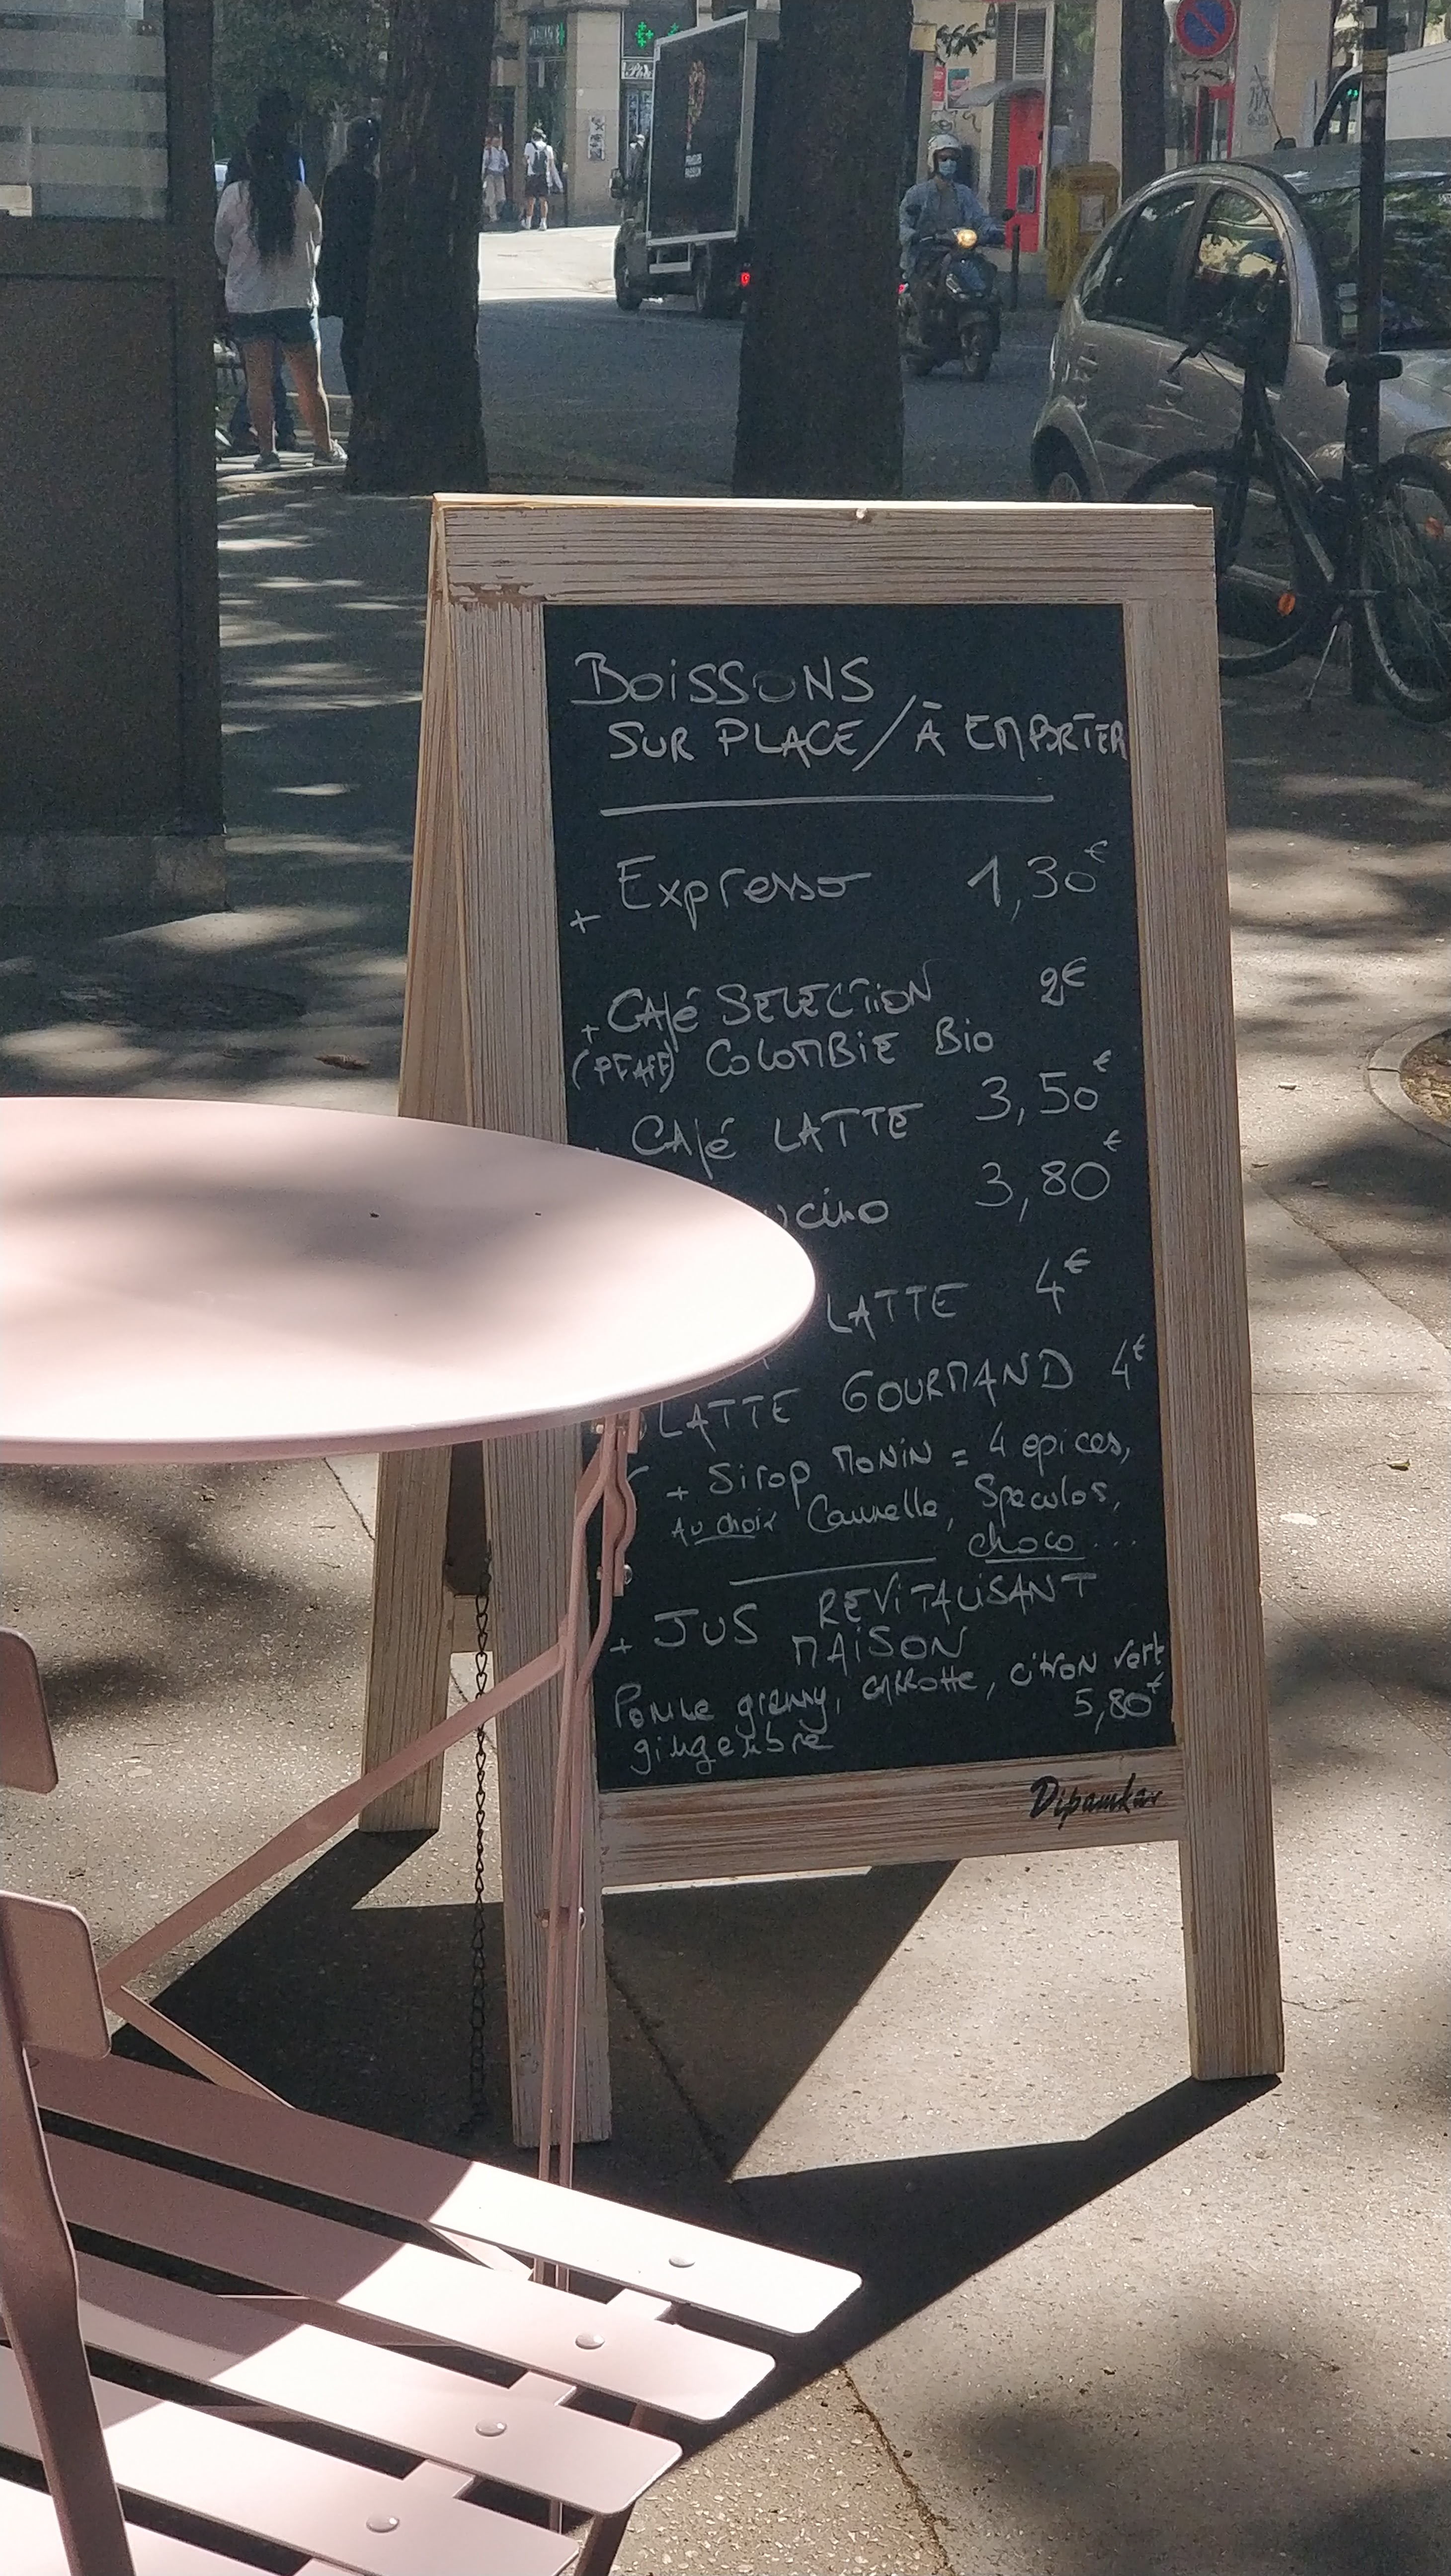 BOISSONS
SUR PLACE / À EMPORTER
+ Expresso 1,30€
+ CAfé SELECTION 2€
(PFAFF) COLOMBIE Bio
CAfé LATTE 3,50€
ucino 3,80€
LATTE 4€
LATTE GOURMAND 4€
+ Sirop MONIN = 4 epices,
Au choix Cannelle, Speculos,
choco...
+ JUS REVITALISANT
MAISON
Pomme granny, carrotte, citron vert
gingembre 5,80€
Dipamkar